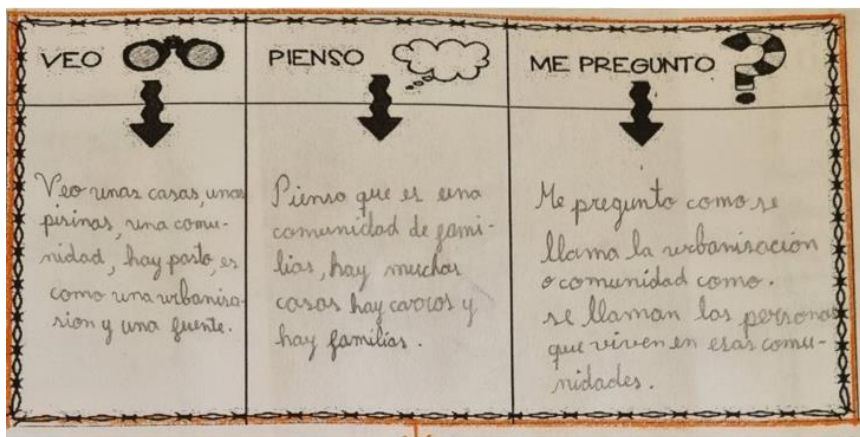 VEO
Veo unas casas, unas
pisinas, una comu-
nidad, hay pasto, es
como una urbanisa-
sion y una fuente.
PIENSO
Pienso que es una
comunidad de fami-
lias, hay muchas
casas hay carros y
hay familias.
ME PREGUNTO
Me pregunto como se
llama la urbanisación
o comunidad como.
se llaman las personas
que viven en esas comu-
nidades.